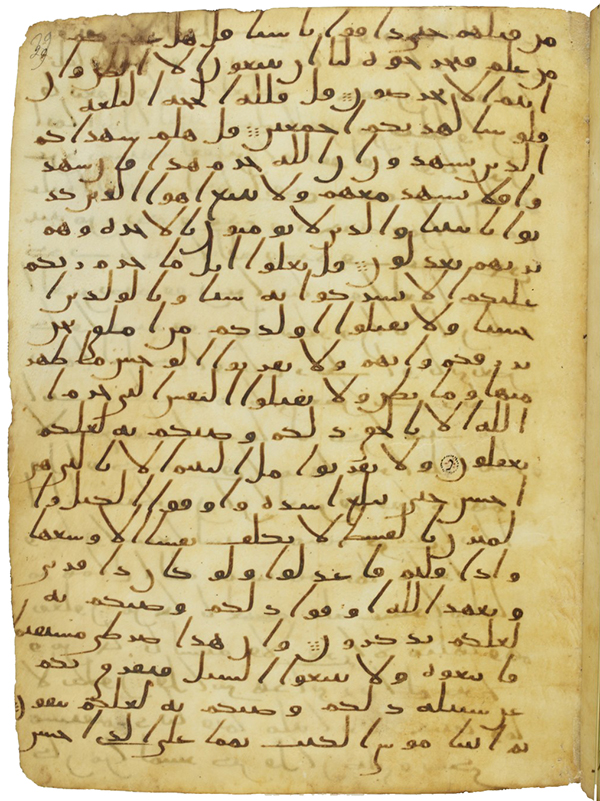 من قبلهم حتى ذاقوا باسنا قل هل عندكم
من علم فتخرجوه لنا ان تتبعون الا الظن وان
انتم الا تخرصون قل فلله الحجة البلغة
فلو شا لهديكم اجمعين قل هلم شهداكم
الذين يشهدون ان الله حرم هذا فان شهد
وا فلا تشهد معهم ولا تتبع اهوا الذين كذ
بوا بايتنا والذين لا يومنون بالاخرة وهم
بربهم يعدلون قل تعلوا اتل ما حرم ربكم
عليكم الا تشركوا به شيا وبالولدين ا
حسنا ولا تقتلوا اولدكم من املق نحن
نرزقكم وايهم ولا تقربوا الفوحش ما ظهر
منها وما بطن ولا تقتلوا النفس التي حرم
الله الا بالحق ذلكم وصيكم به لعلكم
تعقلون ولا تقربوا مل اليتيم الا بالتي هي
احسن حتى يبلغ اشده واوفوا الكيل وا
لميزن بالقسط لا نكلف نفسا الا وسعها
واذا قلتم فاعدلوا ولو كان ذا قربى
وبعهد الله اوفوا ذلكم وصيكم به
لعلكم تذكرون وان هذا صرطي مستقيما
فاتبعوه ولا تتبعوا السبل فتفرق بكم
عن سبيله ذلكم وصيكم به لعلكم تتقون
ثم اتينا موسى الكتب تماما على الذي احسن